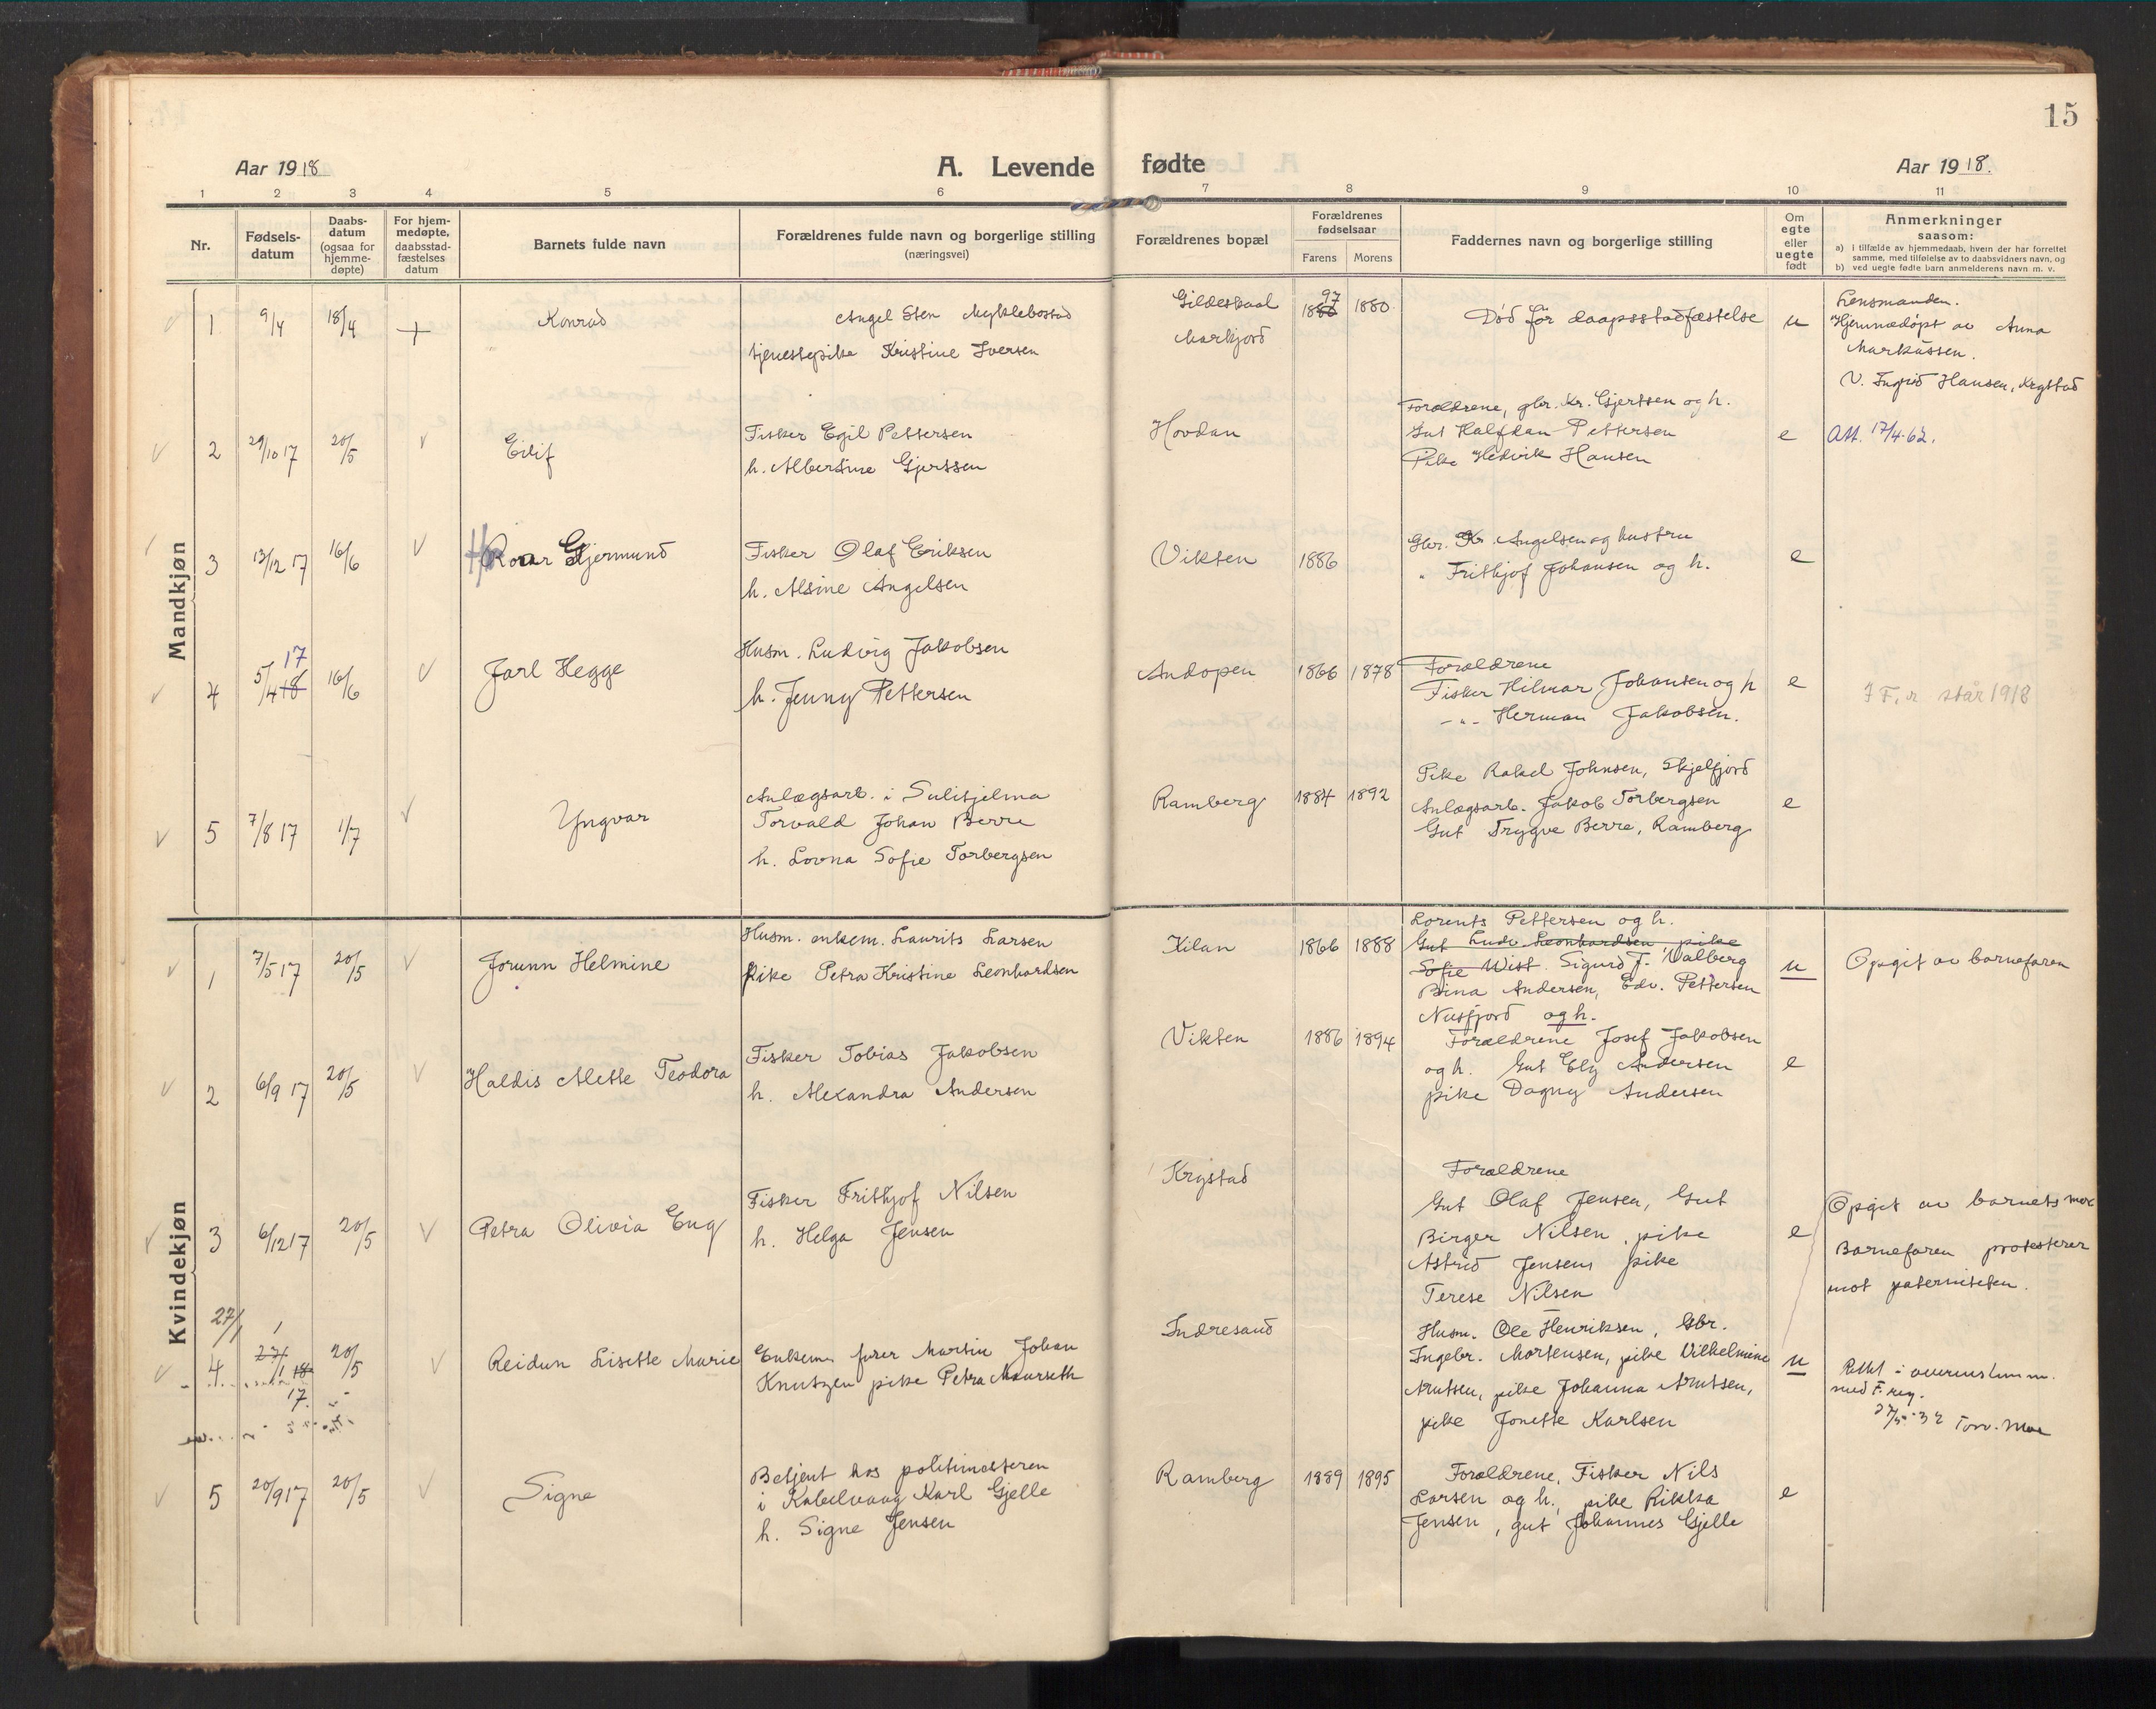 15
Aar 1918
A. Levende fødte
Aar 1918.
1 2 3 4 5 6 7 8 9 10 11
Nr.
Fødsels-
datum
Daabs-
datum
(ogsaa for
hjemme-
døpte)
For hjem-
medøpte,
daabsstad-
fæstelses
datum
Barnets fulde navn
Forældrenes fulde navn og borgerlige stilling
(næringsvei)
Forældrenes bopæl
Forældrenes
fødselsaar
Farens Morens
Faddernes navn og borgerlige stilling
Om
egte
eller
uegte
født
Anmerkninger
saasom:
a) i tilfælde av hjemmedaab, hvem der har forrettet
samme, med tilføielse av to daabsvidners navn, og
b) ved uegte fødte barn anmelderens navn m. v.
Mandkjøn
1 9/4 18/4 + Konrad
Angel Sten Myklebostad
tjenestepike Kristine Iversen
Gildeskaal
Markjord
97
1880
Død før daapsstadfæstelse
u
Lensmanden.
Hjemmedøpt av Anna
Markussen.
V. Ingrid Hansen, Krystad
2 29/10 17 20/5 √ Eilif
Fisker Egil Pettersen
h. Albertine Gjertsen
Hovdan
Forældrene, gbr. Kr. Gjertsen og h.
Gut Halfdan Pettersen
Pike Hedvik Hansen
e
Att. 17/4-62.
3 13/12 17 16/6 √ Roar Gjermund
Fisker Olaf Eriksen
h. Alsine Angelsen
Vikten 1886
Gbr. Kr. Angelsen og hustru
" Frithjof Johansen og h.
e
4 5/4 18 17 16/6 √ Jarl Hegge
Husm. Ludvig Jakobsen
h. Jenny Pettersen
Andopen 1866 1878
Forældrene
Fisker Hilmar Johansen og h
-"- Herman Jakobsen.
e
I F.r står 1918
5 7/8 17 1/7 √ Yngvar
Anlægsarb. i Sulitjelma
Torvald Johan Berre
h. Lovna Sofie Torbergsen
Ramberg 1884 1892
Pike Rakel Johnsen, Skjelfjord
Anlægsarb. Jakob Torbergsen
Gut Trygve Berre, Ramberg
e
Kvindekjøn
1 7/5 17 20/5 √ Jorunn Helmine
Husm. enkem. Laurits Larsen
Pike Petra Kristine Leonhardsen
Kilan 1866 1888
Lorents Pettersen og h.
Gut Ludv. Leonhardsen, pike
Sofie Wist. Sigurd J. Valberg
Bina Andersen, Edv. Pettersen
Nusfjord og h.
u
Opgit av barnefaren
2 6/9 17 20/5 √ Haldis Mette Teodora
Fisker Tobias Jakobsen
h. Alexandra Andersen
Vikten 1886 1894
Forældrene Josef Jakobsen
og h. Gut Ely Andersen
pike Dagny Andersen
e
3 6/12 17 20/5 √ Petra Olivia Eng
Fisker Frithjof Nilsen
h. Helga Jensen
Krystad
Forældrene
Gut Olaf Jensen, Gut
Birger Nilsen, pike
Astrid Jensen, pike
Terese Nilsen
e
Opgit av barnets mor
Barnefaren protesterer
mot paterniteten.
27/1
4 27/1 18 17. 20/5 √ Reidun Lisette Marie
Enkem. fisker Martin Johan
Knutzen pike Petra Maurseth
Indresand
Husm. Ole Henriksen, Gbr.
Ingebr. Mortensen, pike Vilhelmine
Knutsen, pike Johanna Knutsen,
pike Jonette Karlsen
u
Rettet i overensstemm.
med F.reg.
27/5-32 Torv. Moe
5 20/9 17 20/5 √ Signe
Betjent hos politimesteren
i Kabelvaag Karl Gjelle
h. Signe Jensen
Ramberg 1889 1895
Forældrene, Fisker Nils
Larsen og h., pike Rikka
Jensen, gut Johannes Gjelle
e